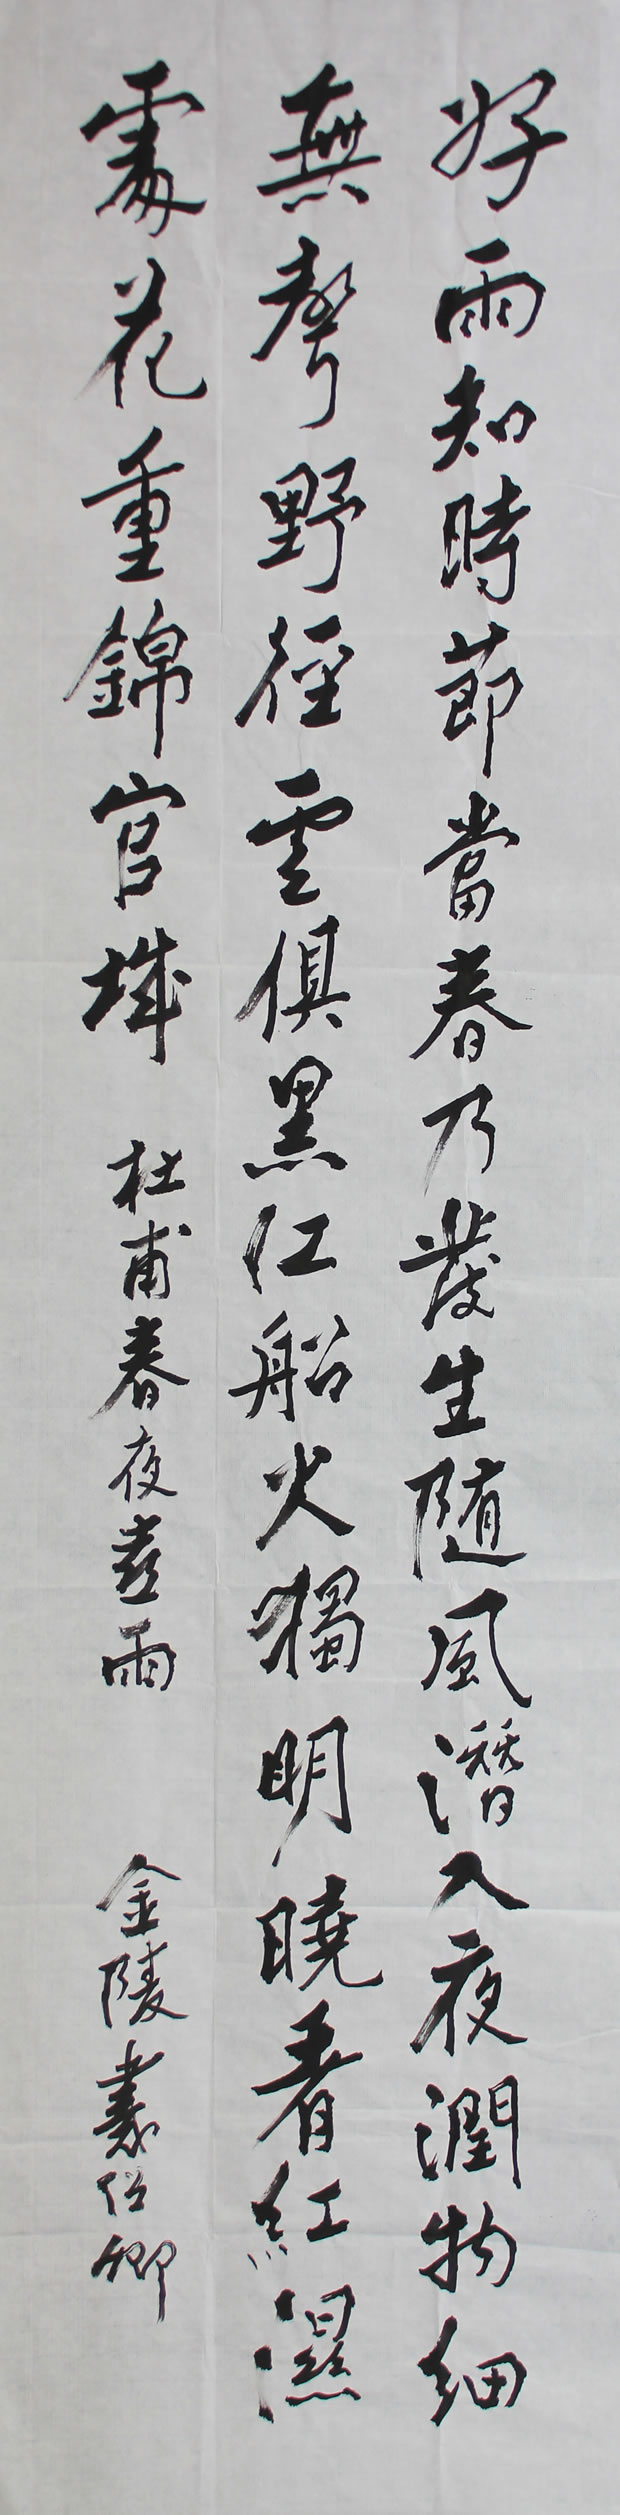 好雨知時節當春乃發生随風潛入夜潤物細
無聲野徑雲俱黑江船火獨明曉看紅濕
處花重錦官城 杜甫春夜喜雨 金陵 卿